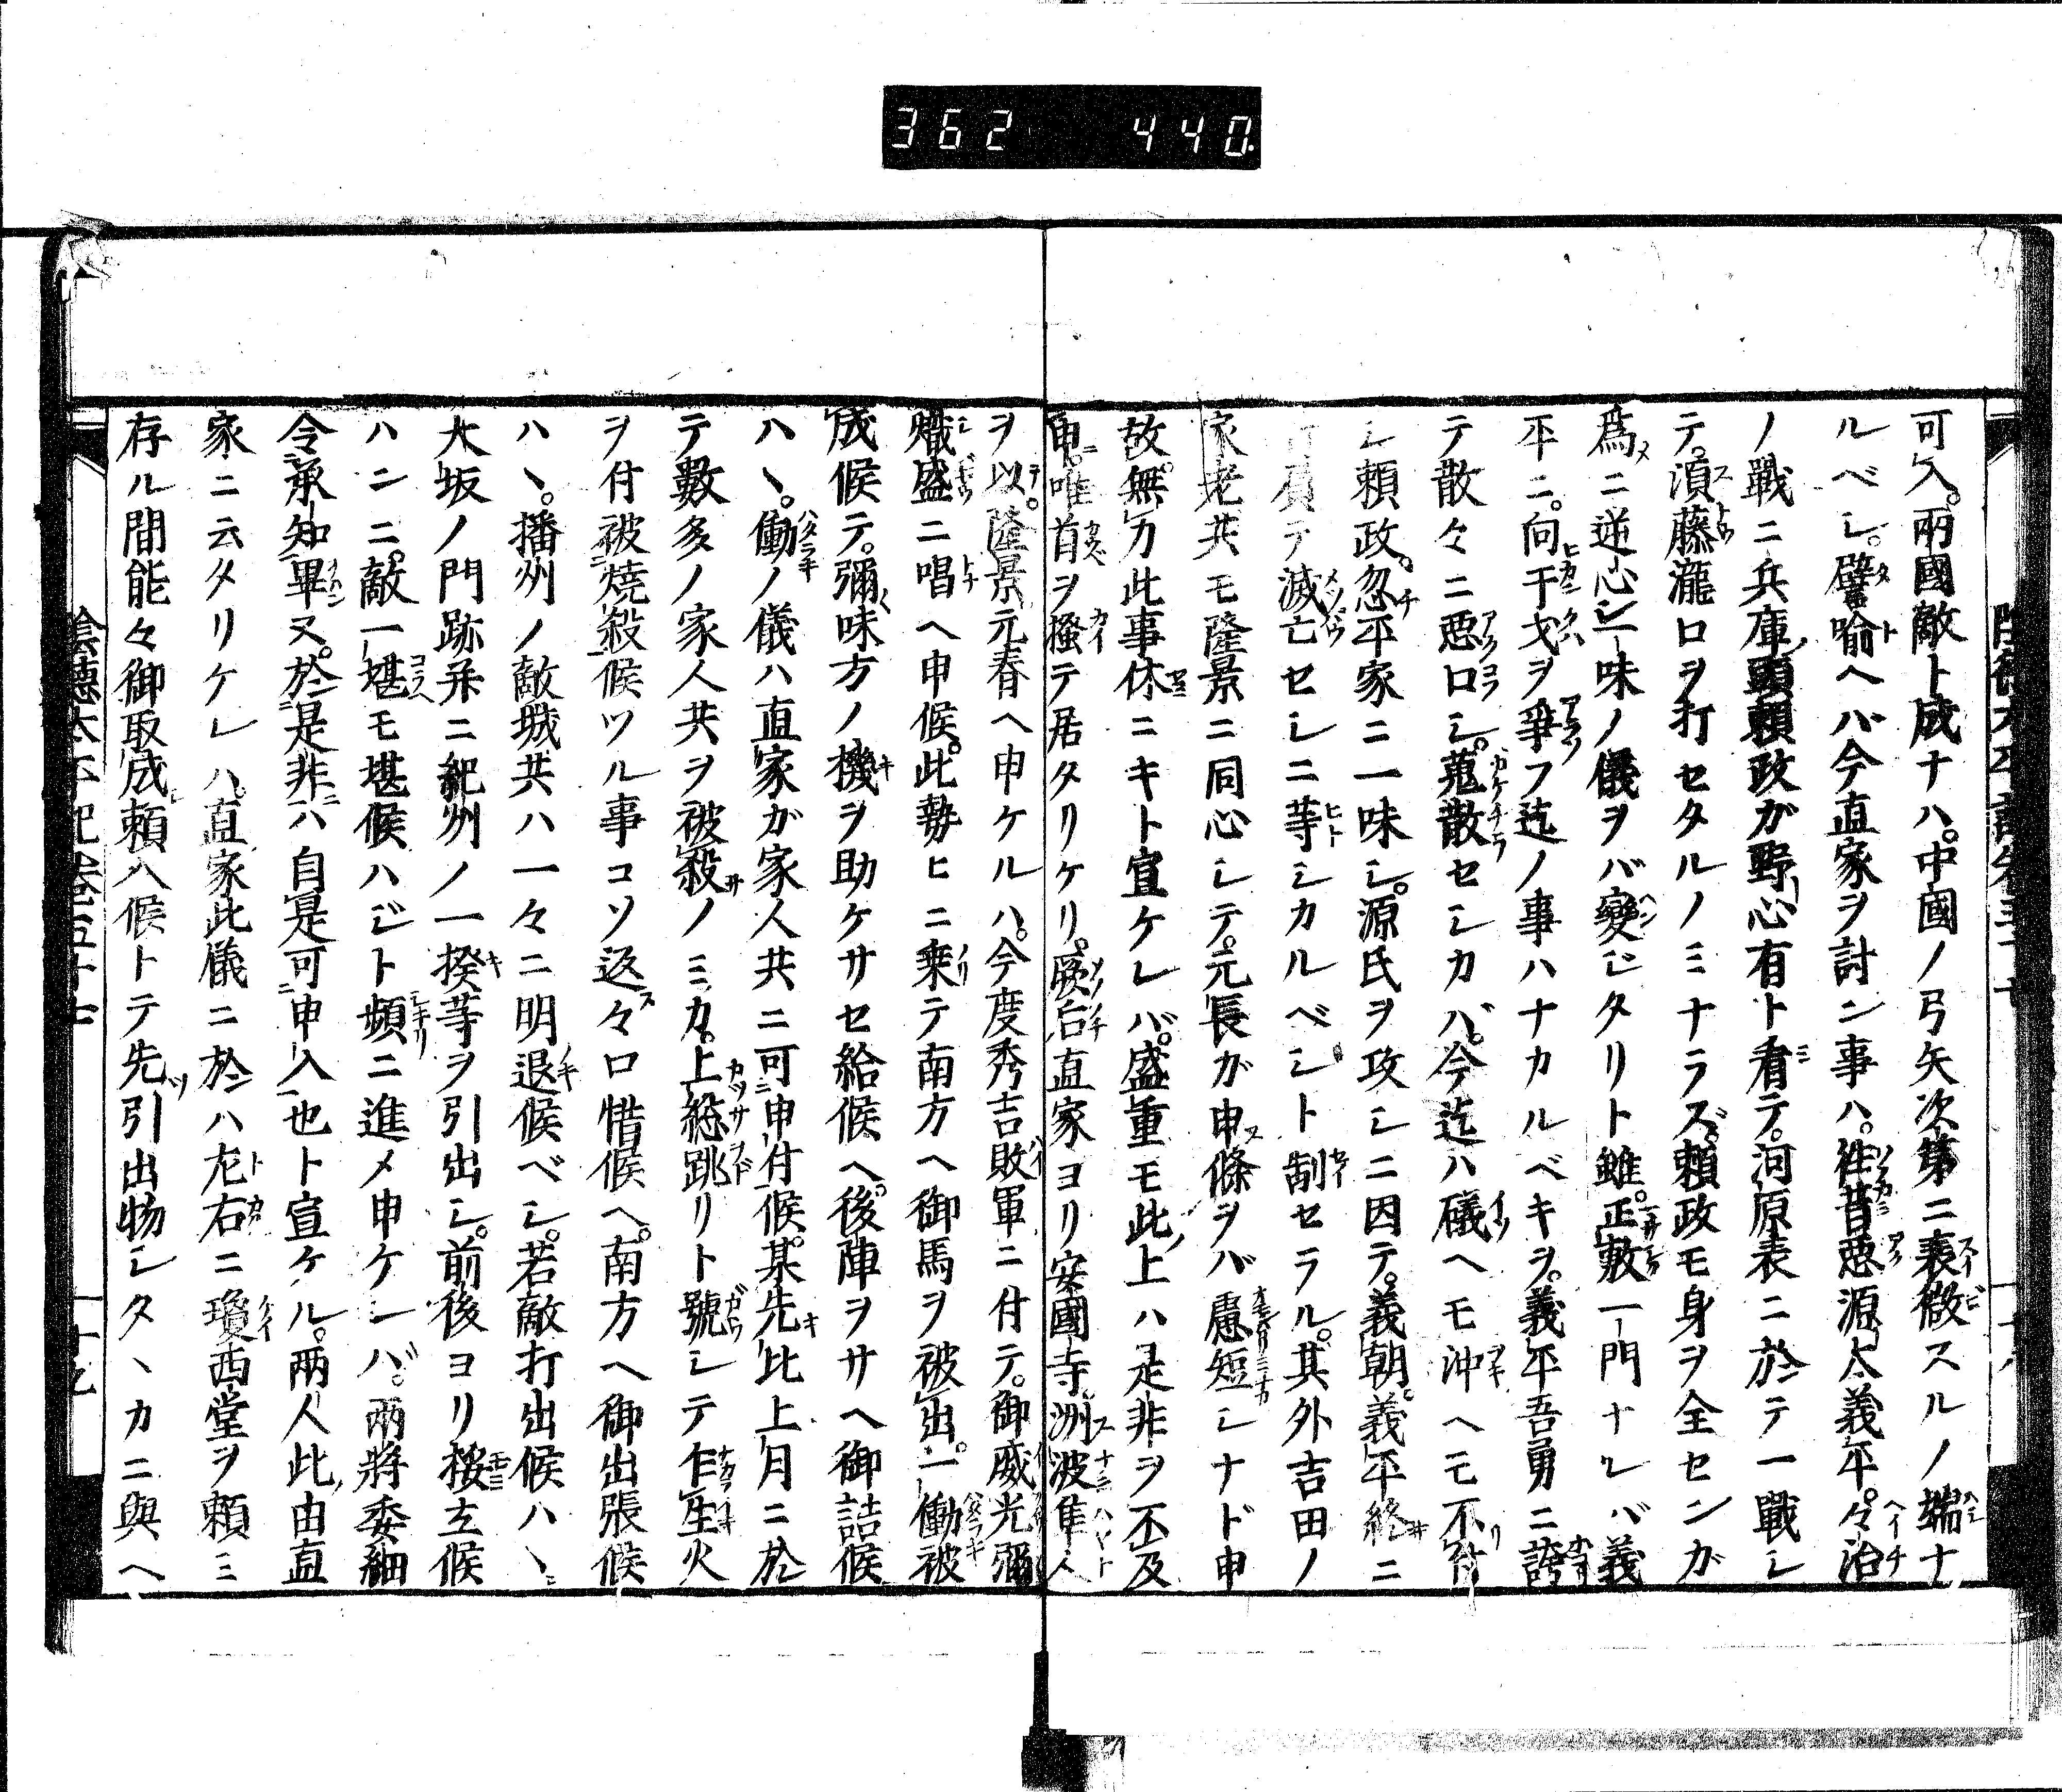 362 440
可入。兩國敵ト成ナハ。中國ノ弓矢次第ニ衰微スルノ端ナ
ルベシ。譬喩ヘバ今直家ヲ討ン事ハ。往昔悪源太義平。々治
ノ戰ニ兵庫頭頼政ガ野心有ト看テ。河原表ニ於テ一戰シ
テ。須藤瀧口ヲ打セタルノミナラズ。頼政モ身ヲ全センガ
爲ニ逆心シ一味ノ儀ヲバ變ジタリト雖。正敷一門ナレバ義
平ニ。向干戈ヲ爭フ迄ノ事ハナカルベキヲ。義平吾勇ニ誇
テ散々ニ悪口シ。蒐散セシカバ。今迄ハ礒ヘモ沖ヘモ不付
シ頼政。忽平家ニ一味シ。源氏ヲ攻シニ因テ。義朝。義平終ニ
打負テ滅亡セシニ等シカルベシト制セラル。其外吉田ノ
家老共モ隆景ニ同心シテ。元長ガ申條ヲバ慮短シナド申
故。無力此事休ニキト宣ケレバ。盛重モ此上ハ是非ヲ不及
申。唯首ヲ掻テ居タリケリ。厥后直家ヨリ安國寺。洲波隼人
ヲ以。隆景元春ヘ申ケルハ。今度秀吉敗軍ニ付テ。御威光彌
熾盛ニ唱ヘ申候。此勢ヒニ乗テ南方ヘ御馬ヲ被出。一働被
成候テ。彌味方ノ機ヲ助ケサセ給候ヘ。後陣ヲサヘ御詰候
ハヽ。働ノ儀ハ直家ガ家人共ニ可申付候。某先比上月ニ於
テ數多ノ家人共ヲ被殺ノミカ。上総跳リト號シテ乍生火
ヲ付被燒殺候ツル事コソ返々口惜候ヘ。南方ヘ御出張候
ハヽ。播州ノ敵城共ハ一々ニ明退候ベシ。若敵打出候ハヽ
大坂ノ門跡并ニ紀州ノ一揆等ヲ引出シ。前後ヨリ接立候
ハンニ。敵一堪モ堪候ハジト頻ニ進メ申ケレバ。兩將委細
令承知畢。又於是非ハ自是可申入也ト宣ケル。兩人此由直
家ニ云タリケレハ。直家此儀ニ於ハ左右ニ瓊西堂ヲ頼ミ
存ル間能々御取成頼入候トテ先引出物シタヽカニ與ヘ
陰德太平記卷五十七